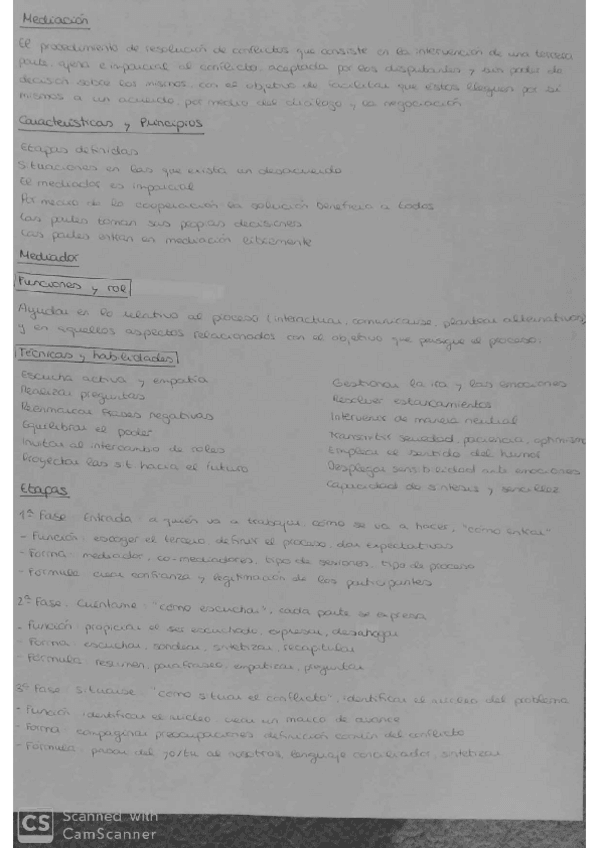 Mediación
El procedimiento de resolución de conflictos que consiste en la intervención de una tercera
parte, ajena e imparcial al conflicto, aceptada por los disputantes y sin poder de
decisión sobre los mismos, con el objetivo de facilitar que éstos lleguen por sí
mismos a un acuerdo, por medio del diálogo y la negociación
Características y Principios
Etapas definidas
Situaciones en las que exista un desacuerdo
El mediador es imparcial
Por medio de la cooperación la solución beneficia a todos
Las partes toman sus propias decisiones
Las partes entran en mediación libremente
Mediador
Funciones y rol
Ayudar en lo relativo al proceso (interactuar, comunicarse, plantear alternativas)
y en aquellos aspectos relacionados con el objetivo que persigue el proceso.
Técnicas y habilidades
Escucha activa y empatía
Realizar preguntas
Reenmarcar frases negativas
Equilibrar el poder
Invitar al intercambio de roles
Proyectar las sit. hacia el futuro
Gestionar la ira y las emociones
Resolver estancamientos
Intervenir de manera neutral
Transmitir seriedad, paciencia, optimismo
Emplear el sentido del humor
Desplegar sensibilidad ante emociones
Capacidad de síntesis y sencillez
Etapas
1ª Fase. Entrada: a quién va a trabajar, cómo se va a hacer, "cómo entrar"
- Función: escoger el tercero, definir el proceso, dar expectativas
- Forma: mediador, co-mediadores, tipo de sesiones, tipo de proceso
- Fórmula: crear confianza y legitimación de los participantes
2ª Fase. Cuéntame: "cómo escuchar", cada parte se expresa
- Función: propiciar el ser escuchado, expresar, desahogar
- Forma: escuchar, sondear, sintetizar, recapitular
- Fórmula: resumen, parafraseo, empatizar, preguntar
3ª Fase. Situarse "cómo situar el conflicto", identificar el núcleo del problema
- Función: identificar el núcleo crear un marco de avance
- Forma: compaginar preocupaciones definición común del conflicto
- Fórmula: pasar del yo/tú al nosotros, lenguaje conciliador, sintetizar
CS Scanned with
CamScanner